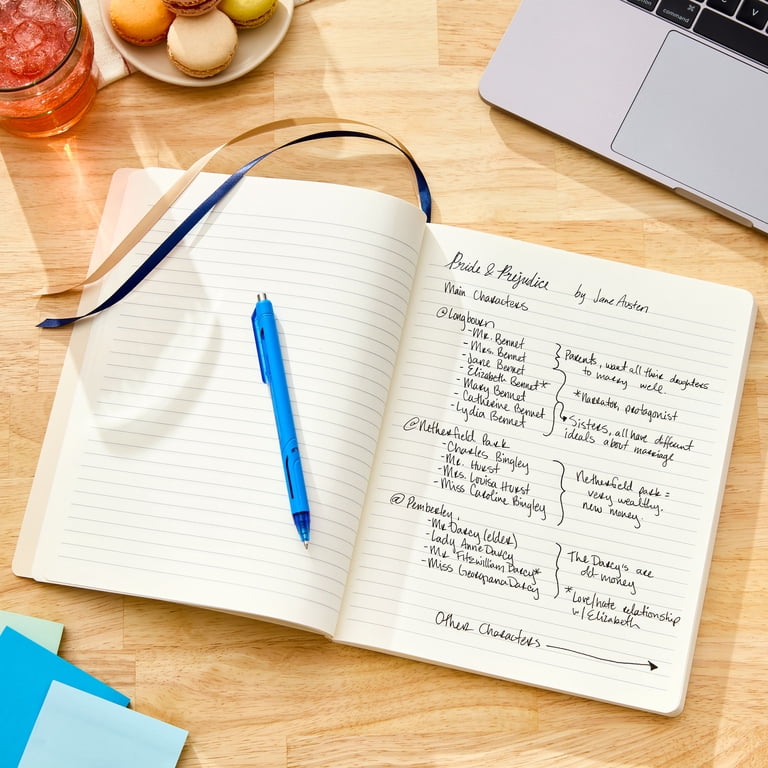 Pride & Prejudice by Jane Austen
Main Characters
@Longbourn
- Mr. Bennet
- Mrs. Bennet
- Jane Bennet
- Elizabeth Bennet*
- Mary Bennet
- Catherine Bennet
- Lydia Bennet
Parents, want all their daughters
to marry well.
*Narrator, protagonist
Sisters, all have different
ideals about marriage
@Netherfield Park
- Charles Bingley
- Mr. Hurst
- Mrs. Louisa Hurst
- Miss Caroline Bingley
Netherfield park =
very wealthy.
new money.
@ Pemberley
- Mr Darcy (elder)
- Lady Anne Darcy
- Mr Fitzwilliam Darcy*
- Miss Georgiana Darcy
The Darcy's are
old money
*Love/hate relationship
w/ Elizabeth
Other Characters
command
C
V